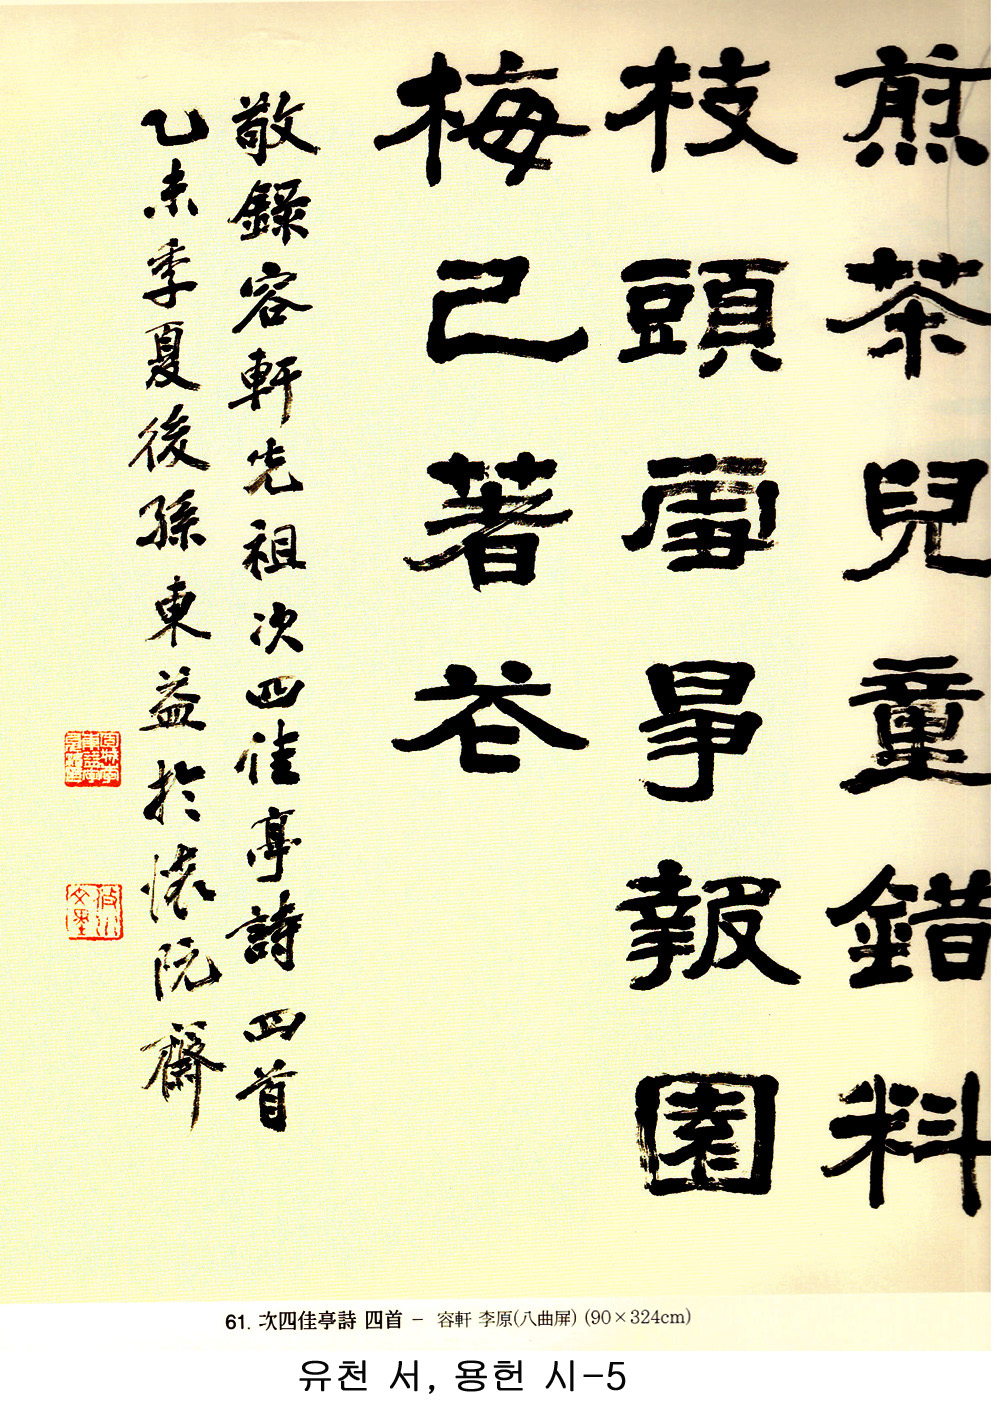 煎茶兒童錯料
枝頭雪爭報園
梅已著花
敬錄容軒先祖次四佳亭詩四首
乙未季夏後孫東益於懷阮齋
61. 次四佳亭詩 四首 - 容軒 李原(八曲屏) (90×324cm)
유천 서, 용헌 시-5